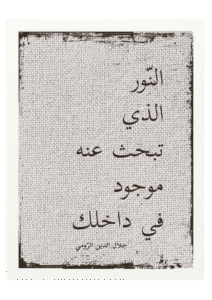 النّور
الذي
تبحث عنه
موجود
في داخلك
جلال الدين الرّومي